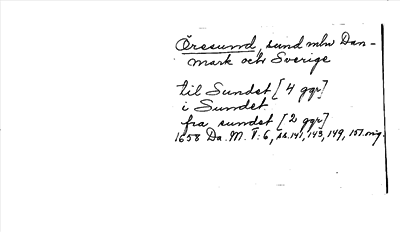 Öresund, sund mln Dan-
mark och Sverige
till Sundet [4 ggr]
i Sundet
fra sundet [2 ggr]
1658 Da. M. I: 6, ss. 141, 143, 149, 151.